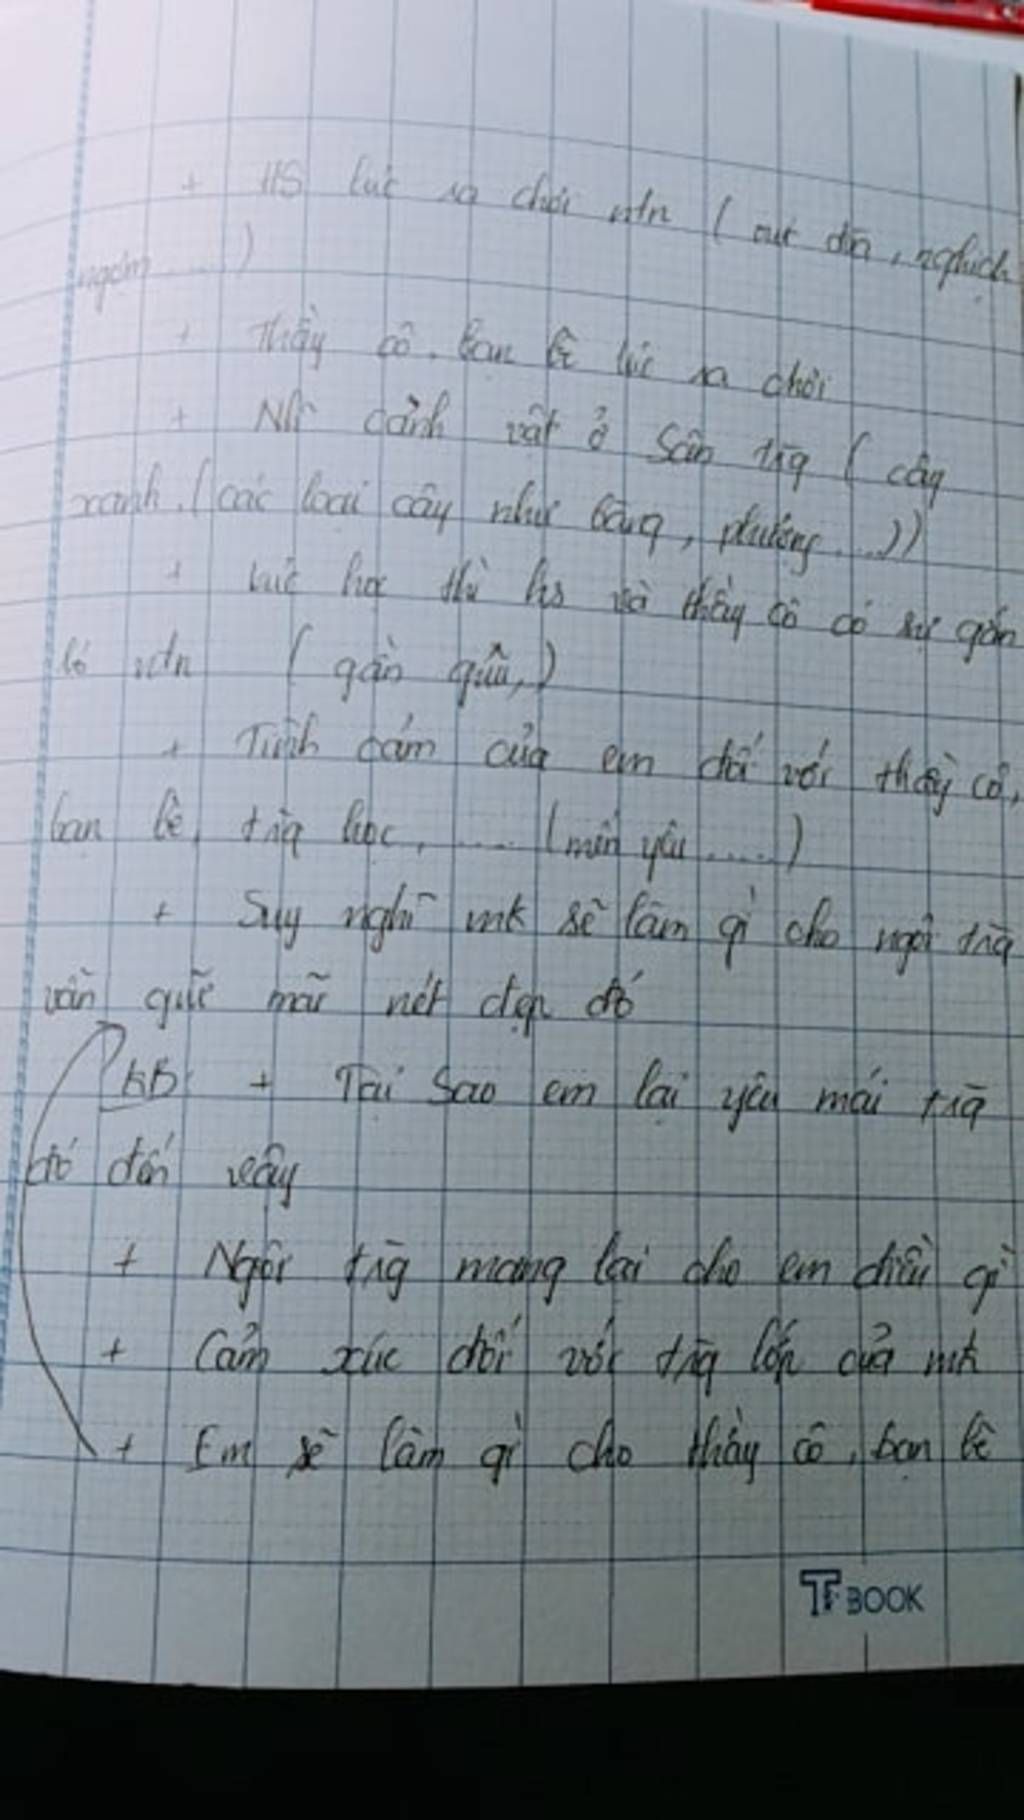 + HS lúc ra chơi ntn ( nghịch
ngợm ....)
+ Thầy cô, bạn bè lúc ra chơi
+ cảnh vật ở sân trg ( cây
xanh. (các loại cây như bàng, phượng...))
+ lúc học thì hs và thầy cô có sự gắn
bó ntn ( gần gũi,)
+ Tình cảm của em đối với thầy cô,
bạn bè, trg học, ..... (mến yêu .....)
+ Suy nghĩ mk sẽ làm gì cho ngôi trg
vẫn giữ mãi nét đẹp đó
KB: + Tại sao em lại yêu mái trg
đó đến vậy
+ Ngôi trg mang lại cho em điều gì
+ Cảm xúc đối với trg lớp của mk
+ Em sẽ làm gì cho thầy cô, bạn bè
TF BOOK